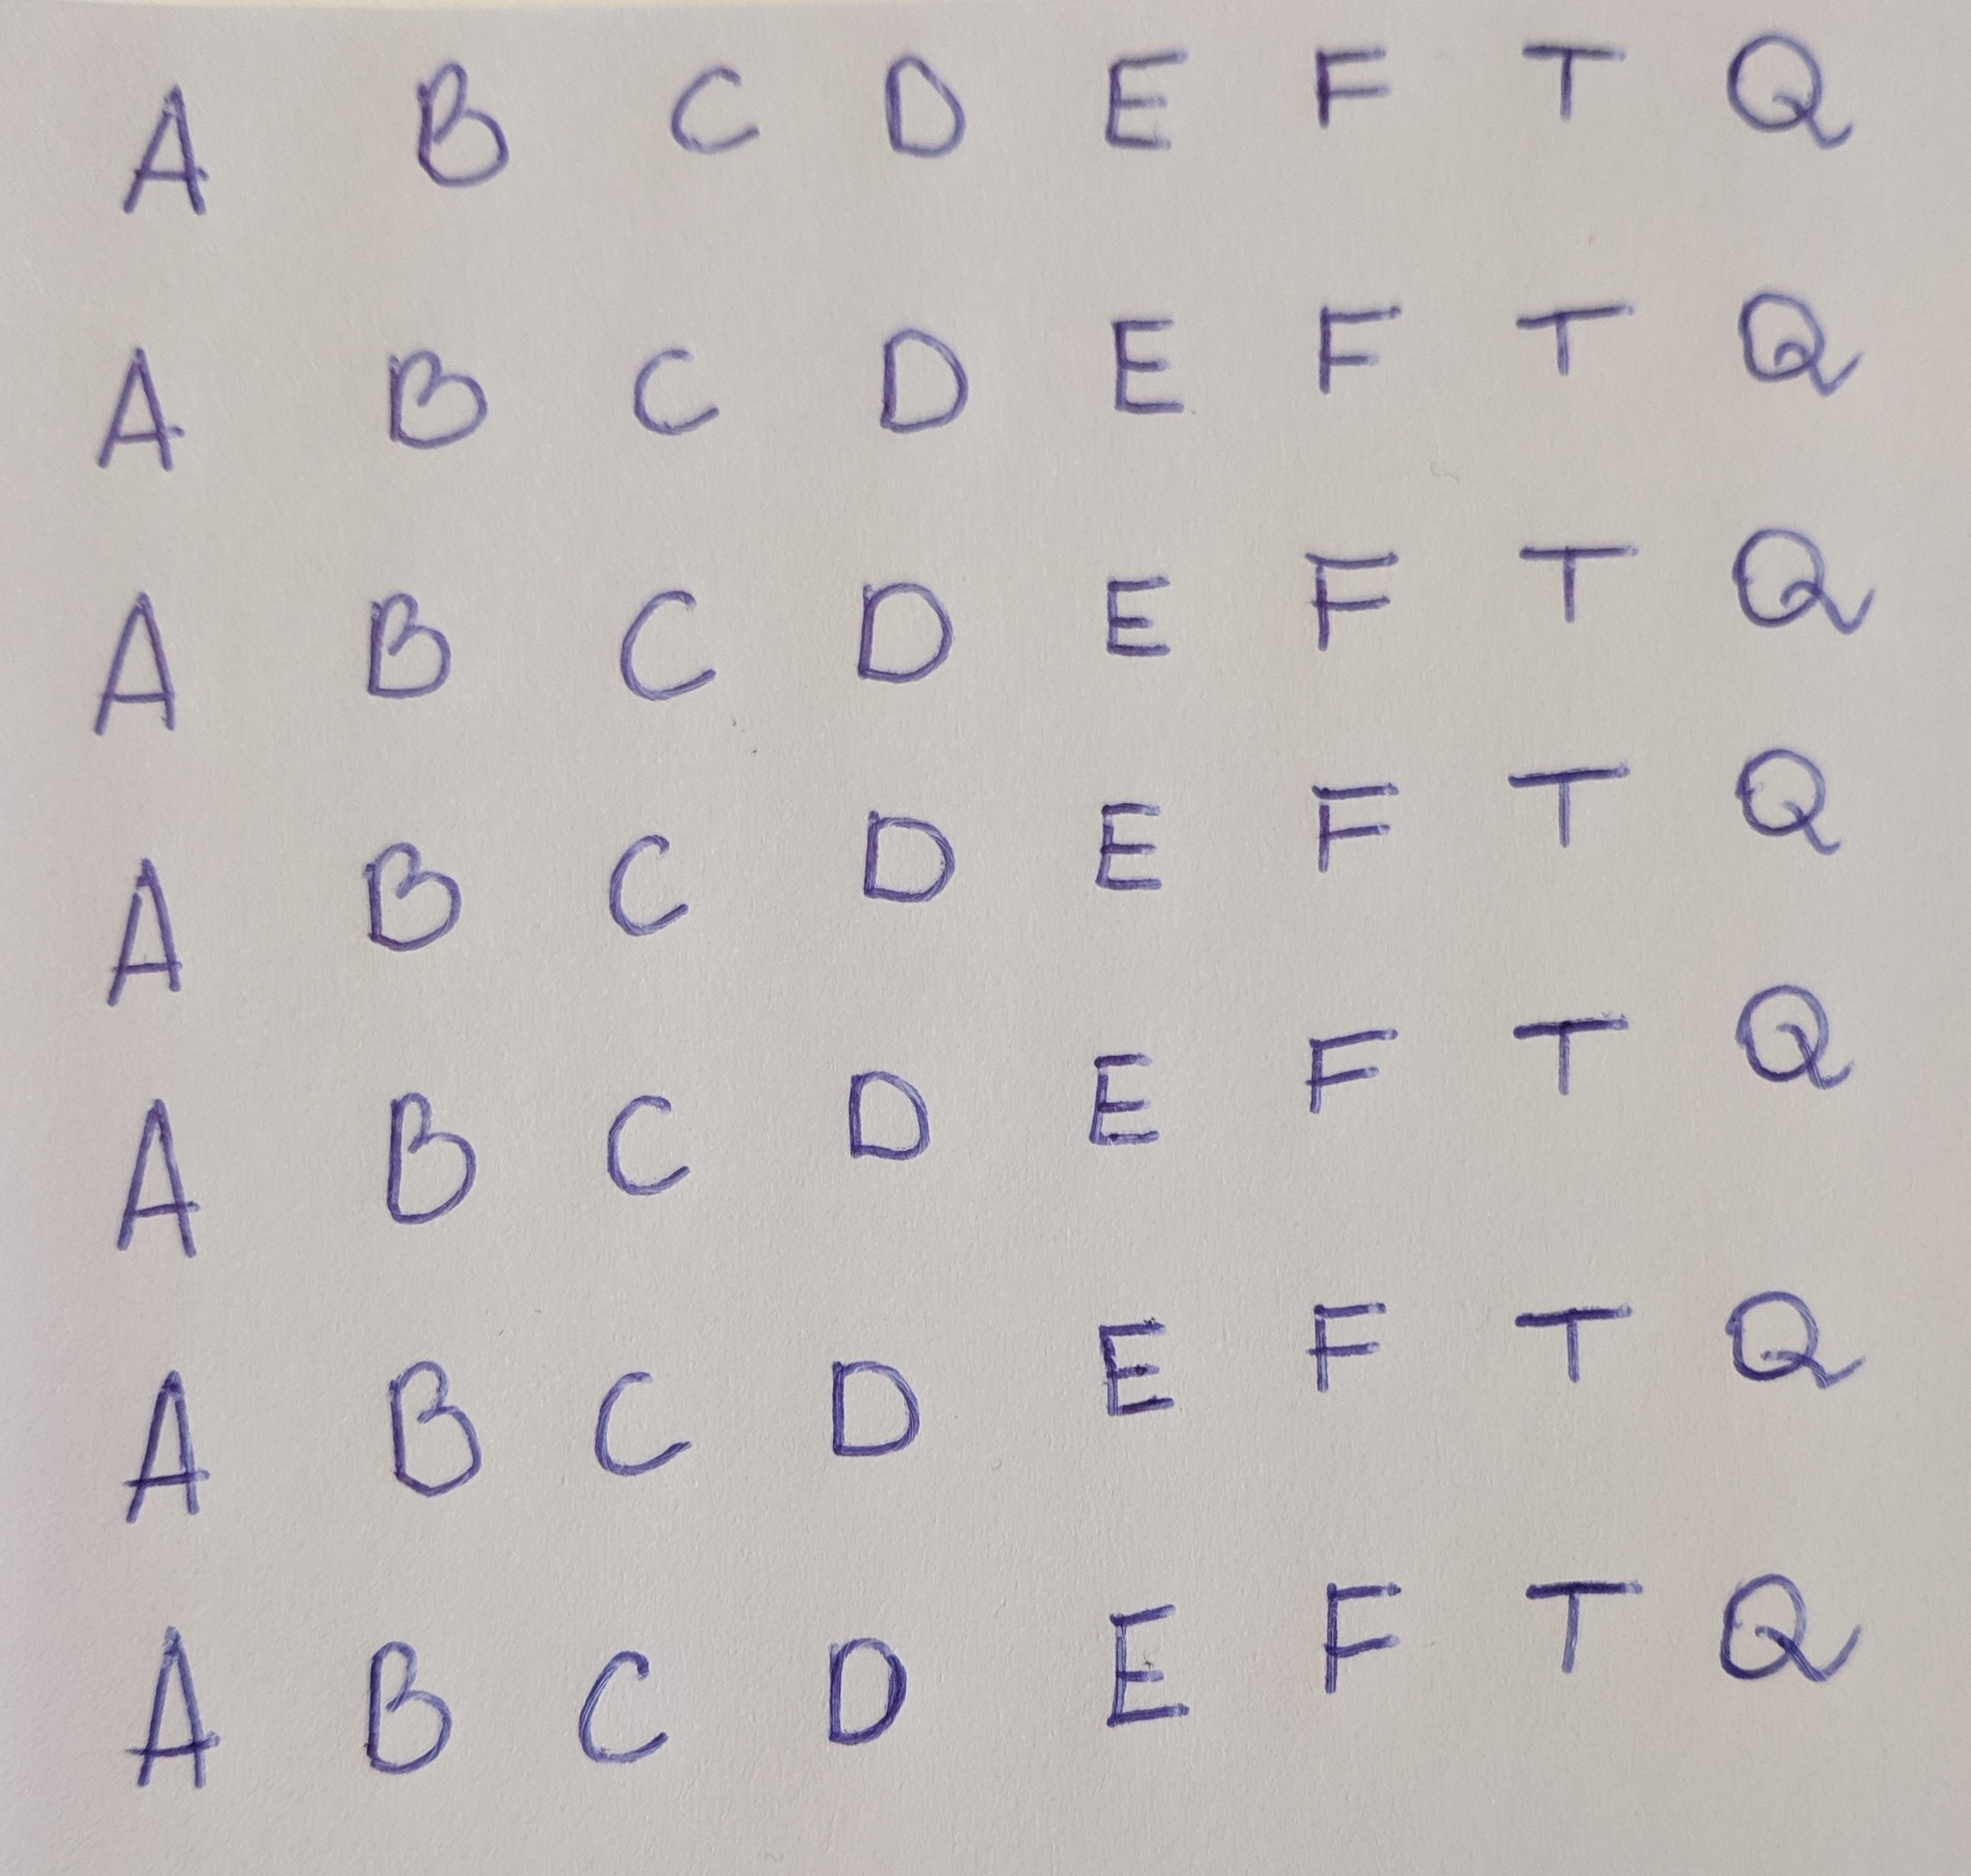 A B C D E F T Q
A B C D E F T Q
A B C D E F T Q
A B C D E F T Q
A B C D E F T Q
A B C D E F T Q
A B C D E F T Q